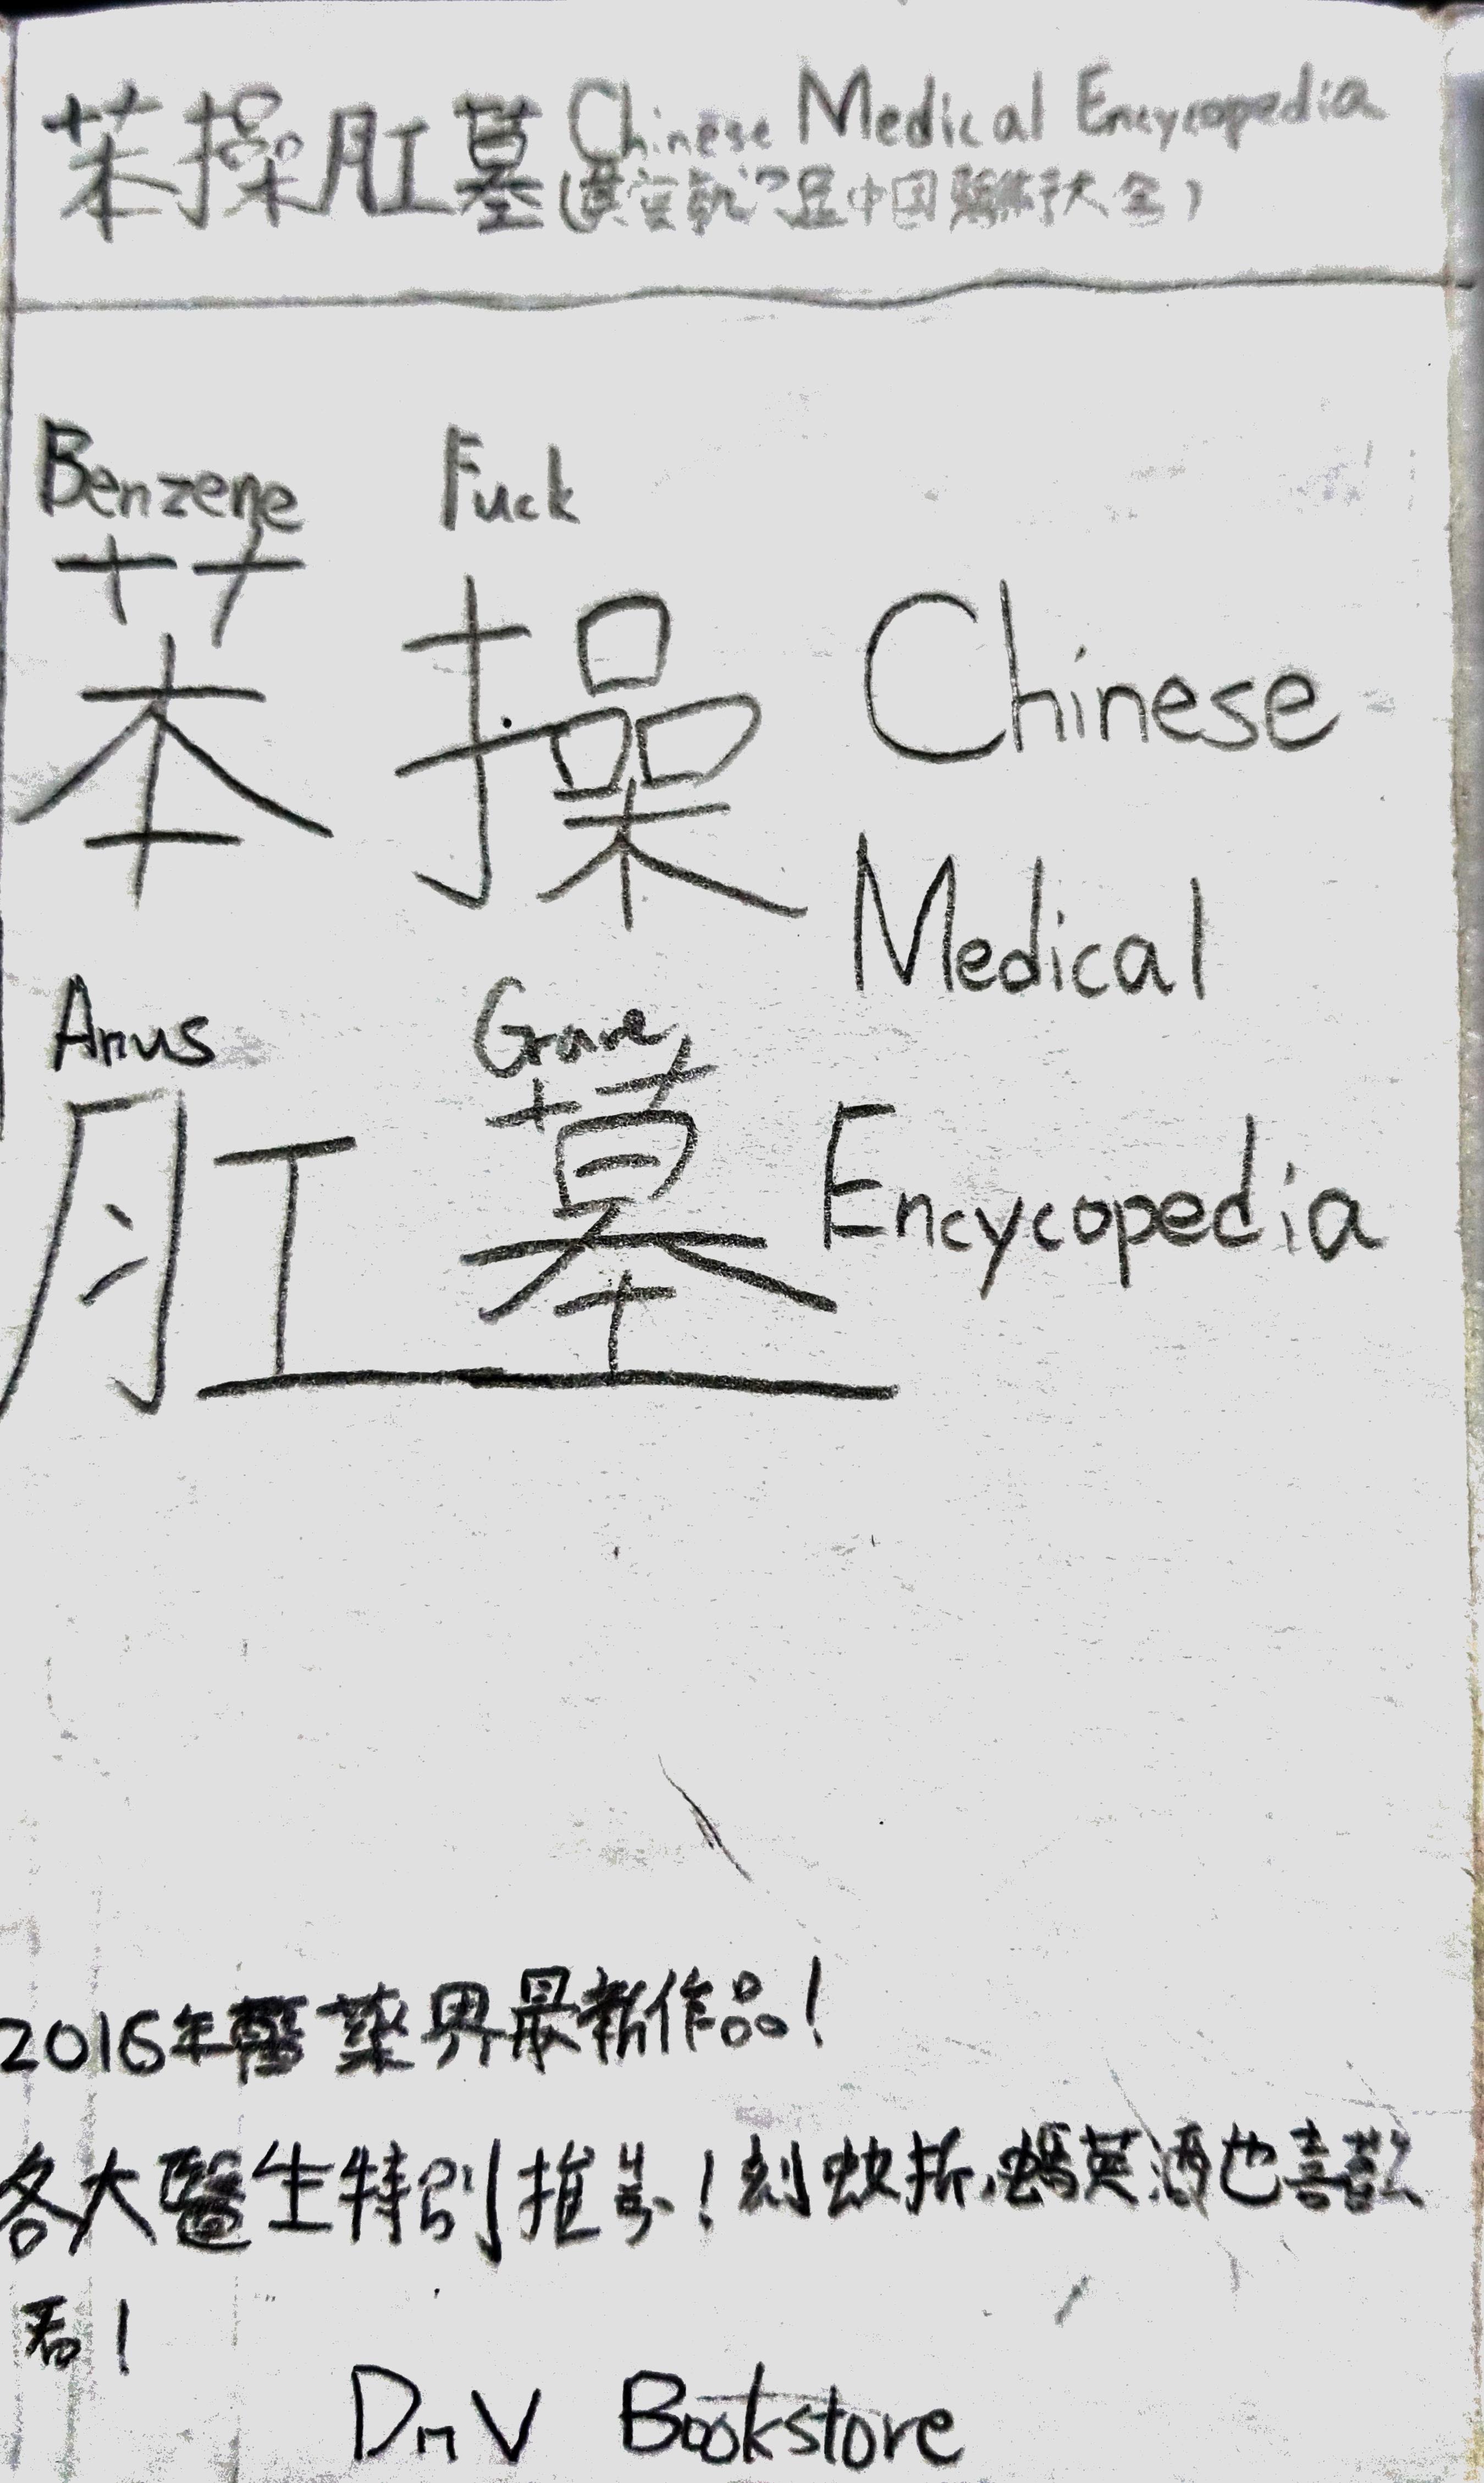 苯操肛墓 Chinese Medical Encycopedia
中国大全)
Benzene Fuck
苯操 Chinese
Medical
Anus Grave
肛墓 Encycopedia
2016年醫藥界最新作品!
各大醫生特別推!刘蚊折,蝎英酒也喜歡
看!
DnV Bookstore